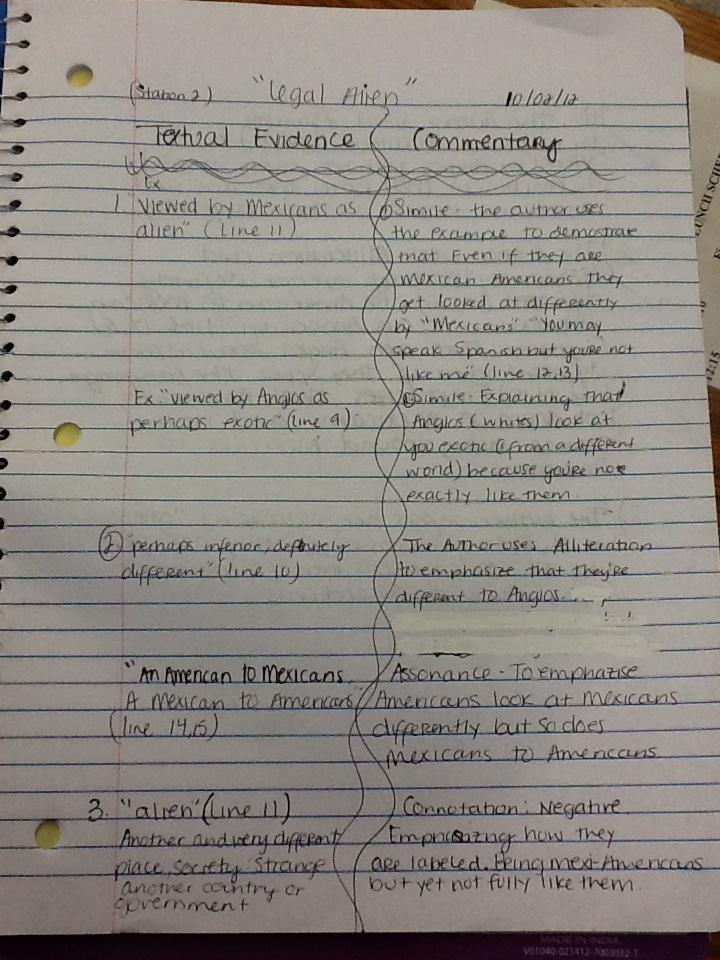 (Station 2) "Legal Alien" 10/02/12
Textual Evidence Commentary
Ex
1. "Viewed by Mexicans as
alien" (line 11)
① Simile - the author uses
the example to demostrate
that Even if they are
Mexican-Americans they
get looked at differently
by "Mexicans" "You may
speak Spanish but you're not
like me" (line 12,13)
Ex "viewed by Anglos as
perhaps exotic" (line 9)
Simile - Explaining that
Anglos (whites) look at
you exotic (from a different
world) because you're not
exactly like them.
② "perhaps inferior, definitely
different" (line 10)
The Author uses Alliteration
to emphasize that they're
different to Anglos.
"An American to Mexicans
A Mexican to Americans"
(line 14,15)
Assonance - To emphazise
Americans look at Mexicans
differently but so does
Mexicans to Americans
3. "alien" (line 11)
Another and very different
place, society. Strange
another country or
government
Connotation: Negative
how they
are labeled. Being mexi-Americans
but yet not fully like them.
LUNCH SCHE
12:15
MADE IN INDIA
V01040-021412-7003032-1